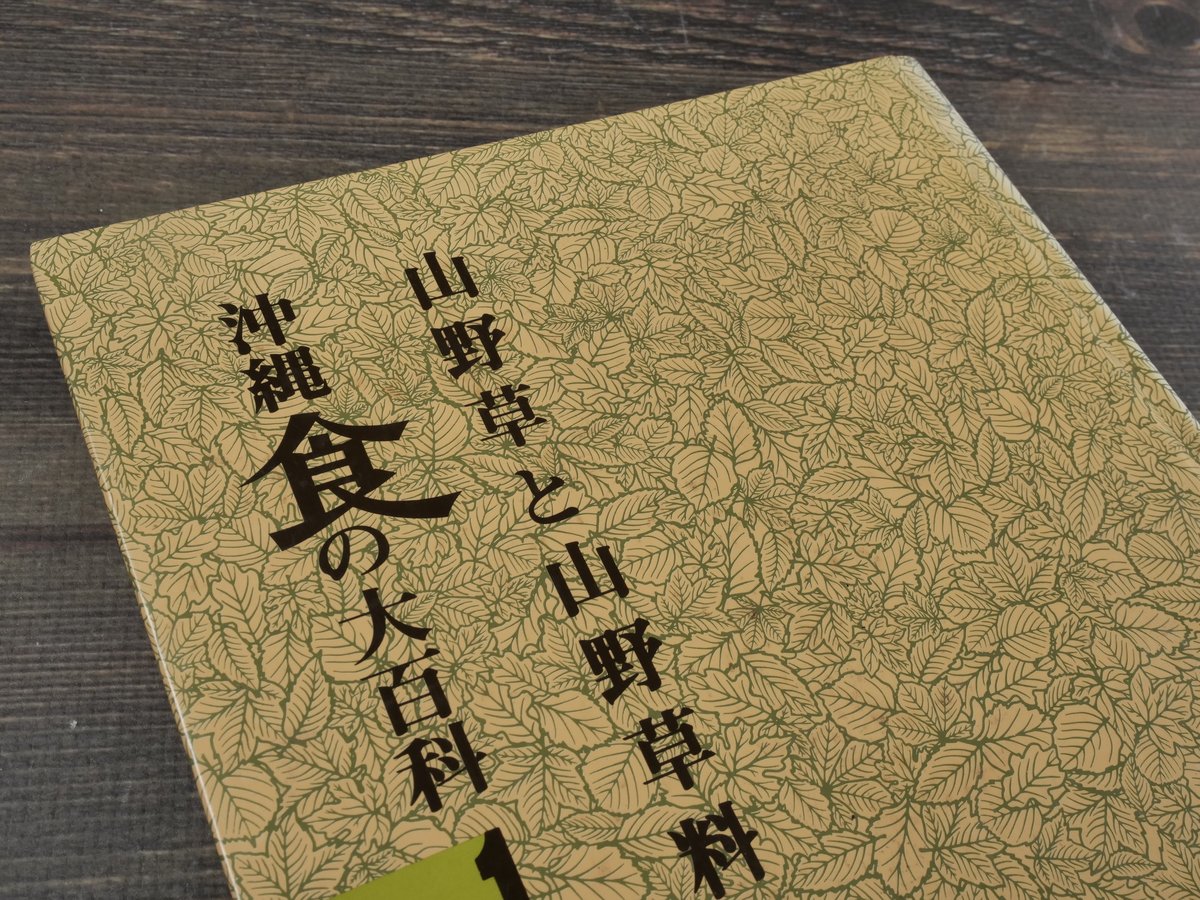 山野草と山野草料
沖縄食の大百科
1